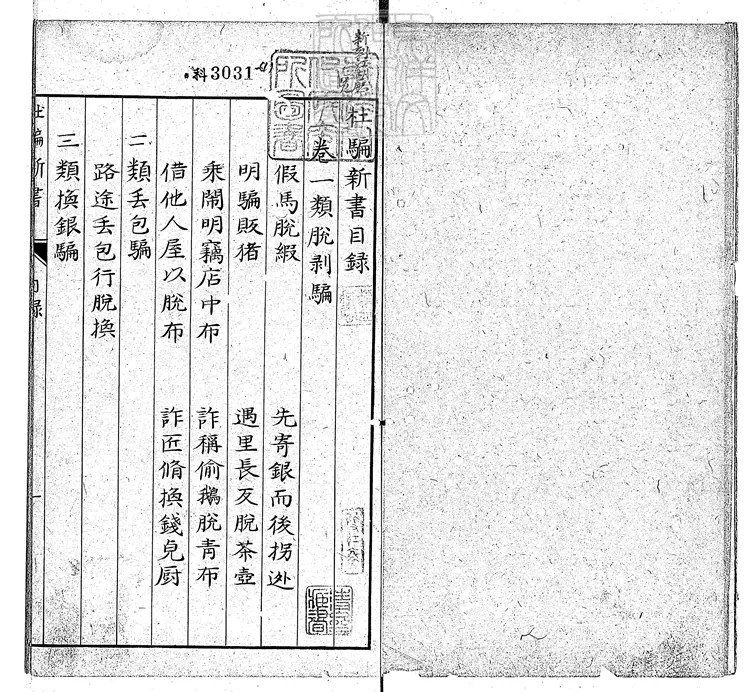 科3031
杜騙新書目錄
卷一類脫剥騙
假馬脫緞 先寄銀而後拐迯
明騙販猪 遇里長反脫茶壺
乘鬧明竊店中布 詐稱偷鵝脫青布
借他人屋以脫布 詐匠脩換錢皃厨
二類丢包騙
路途丢包行脫換
三類換銀騙
杜騙新書
目錄
一